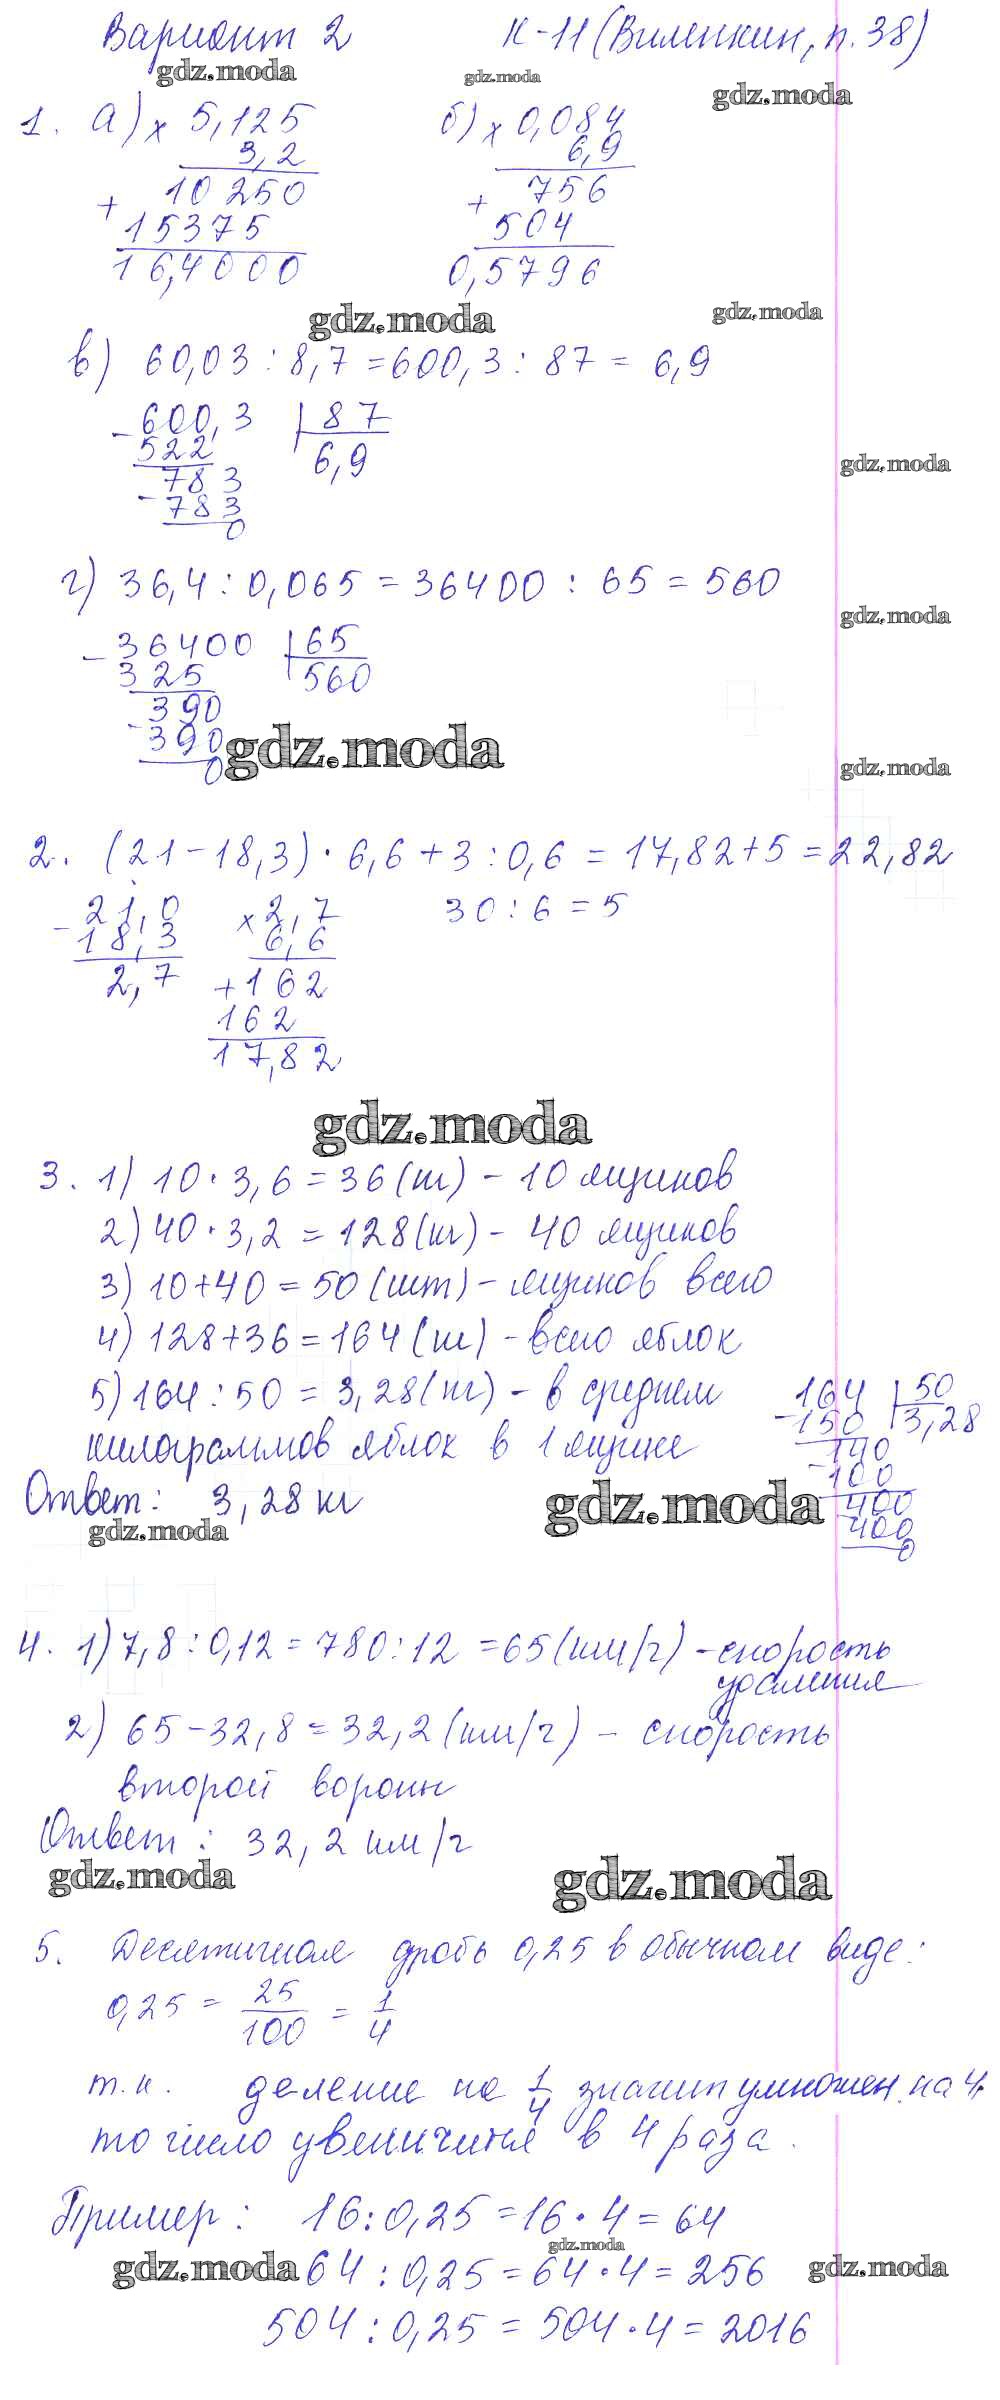 Вариант 2 К-11 (Виленкин, п. 38)
gdz.moda gdz.moda gdz.moda
1. а) × 5,125 б) × 0,084
3,2 6,9
+ 10250 + 756
15375 504
16,4000 0,5796
gdz.moda gdz.moda
в) 60,03 : 8,7 = 600,3 : 87 = 6,9
- 600,3 | 87
522 6,9
gdz.moda
783
- 783
0
г) 36,4 : 0,065 = 36400 : 65 = 560
gdz.moda
- 36400 | 65
325 560
390
- 390
0
gdz.moda gdz.moda
2. (21 - 18,3) · 6,6 + 3 : 0,6 = 17,82 + 5 = 22,82
- 21,0 × 2,7 30 : 6 = 5
18,3 6,6
2,7 + 162
162
17,82
gdz.moda
3. 1) 10 · 3,6 = 36 (кг) - 10 ящиков
2) 40 · 3,2 = 128 (кг) - 40 ящиков
3) 10 + 40 = 50 (шт) - ящиков всего
4) 128 + 36 = 164 (кг) - всего яблок
5) 164 : 50 = 3,28 (кг) - в среднем
килограммов яблок в 1 ящике
164 | 50
- 150 3,28
140
- 100
400
400
0
Ответ: 3,28 кг
gdz.moda gdz.moda
4. 1) 7,8 : 0,12 = 780 : 12 = 65 (км/ч) - скорость
удаления
2) 65 - 32,8 = 32,2 (км/ч) - скорость
второй ворон
Ответ: 32,2 км/ч
gdz.moda gdz.moda
5. Десятичная дробь 0,25 в обычном виде:
0,25 = 25/100 = 1/4
т.к. деление на 1/4 значит умножен. на 4,
то число увеличится в 4 раза.
Пример: 16 : 0,25 = 16 · 4 = 64
gdz.moda
gdz.moda 64 : 0,25 = 64 · 4 = 256 gdz.moda
504 : 0,25 = 504 · 4 = 2016